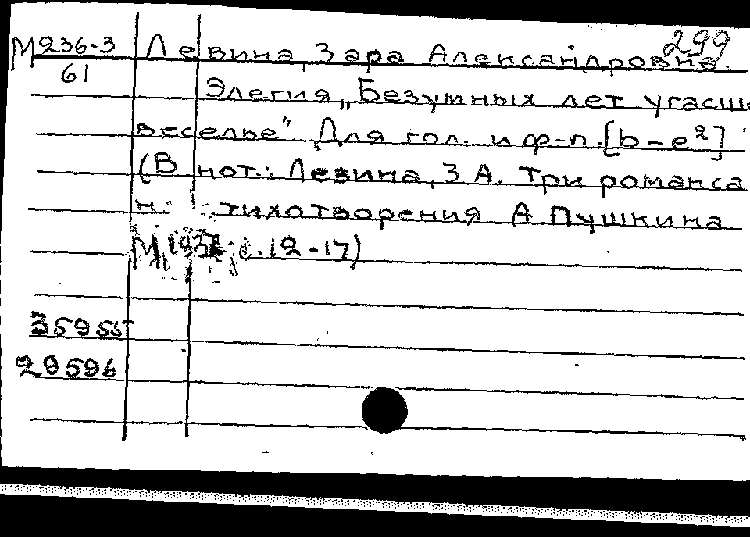 299
М 236-3 Левина, Зара Александровна.
61
Элегия „Безумных лет угасш
веселье" Для гол. и ф-п. [b-e²]
(В нот.: Левина, З А. Три романса
тихотворения А Пушкина
М, с. 12-17)
35955
29596